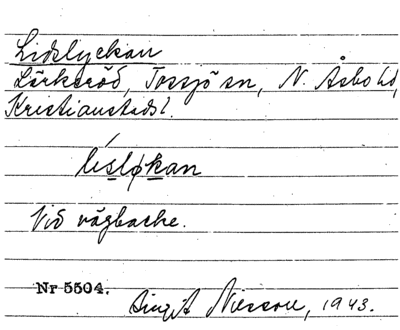 Lidslyckan
Lärkeröd, Tossjö sn, N. Åsbo hd,
Kristianstads l.
li̍slø̨kan
Vid vägbacke.
Nr 5504.
Birgit Nilsson, 1943.